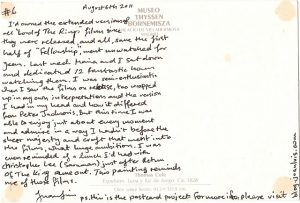 #6
August 6th 2011
I'd owned the extended versions of
all "Lord of The Ring" films since
they were released and all, save the first
half of "Fellowship", went unwatched for
years. Last week Maria and I sat down
and dedicated 12 fantastic hours
watching them. I was semi-enthusiastic
when I saw the films on release, too wrapped
up in my own interpretations and the version
I had in my head and how it differed
from Peter Jackson's. But this time I was
able to enjoy just about every moment
and admire in a way I hadn't before the
sheer majesty and craft that went into
the films, what huge ambition. I was
even reminded of a lunch I'd had with
Christopher Lee (Saruman) just after Return
Of The King came out. This painting reminds
me of those films.
ps. this is the postcard project for more info, please visit
MUSEO
THYSSEN
BORNEMISZA
Thomas Cole